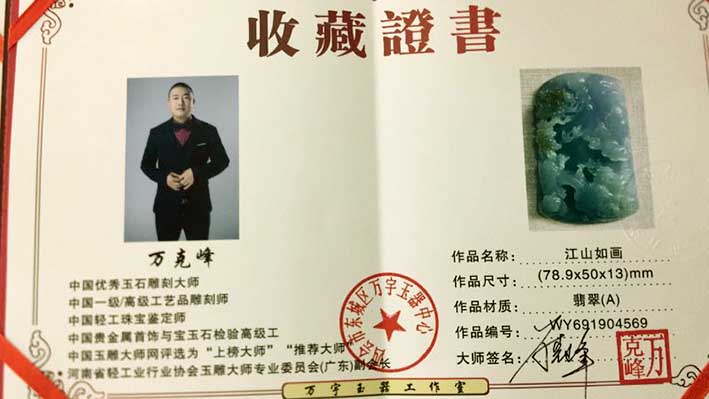 收藏證書
万克峰
中国优秀玉石雕刻大师
中国一级/高级工艺品雕刻师
中国轻工珠宝鉴定师
中国贵金属首饰与宝玉石检验高级工
中国玉雕大师网评选为“上榜大师”“推荐大师”
河南省轻工业行业协会玉雕大师专业委员会(广东)副会长
四会市东城区万字玉器中心
作品名称： 江山如画
作品尺寸： (78.9x50x13)mm
作品材质： 翡翠(A)
作品编号： WY691904569
大师签名：
克峰
万字玉器工作室